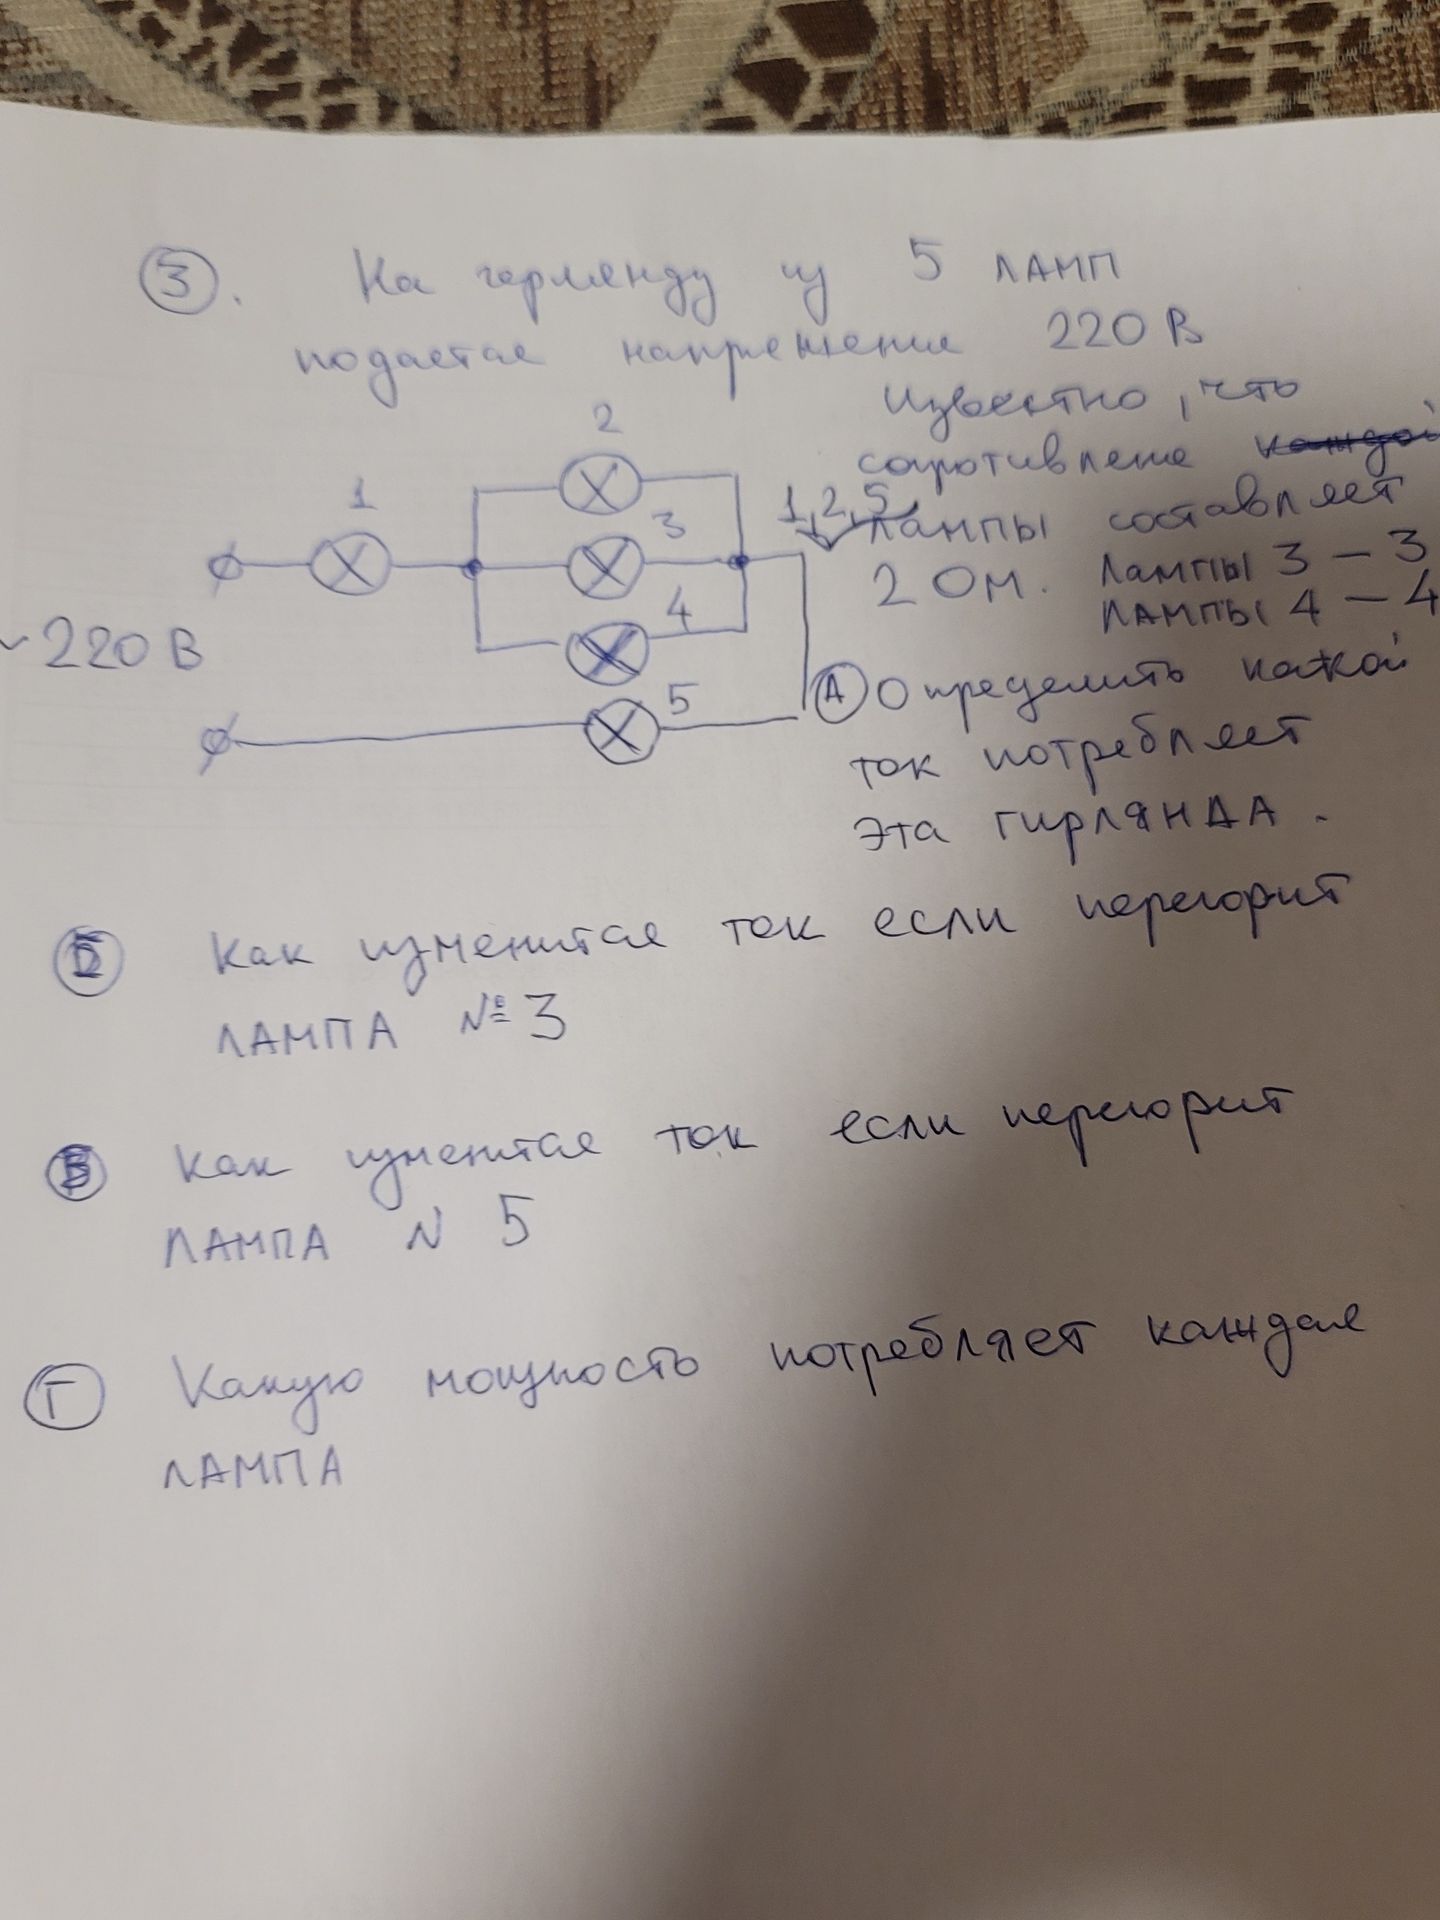 3. На герленду из 5 ламп
подается напряжение 220 В
Известно, что
сопротивление каждой
1, 2, 5 лампы составляет
2 Ом. Лампы 3 – 3
Лампы 4 – 4
1
2
3
4
5
~220 В
А Определить какой
ток потребляет
эта гирлянда.
Б Как изменится ток если перегорит
лампа №3
В Как изменится ток если перегорит
лампа N 5
Г Какую мощность потребляет каждая
лампа